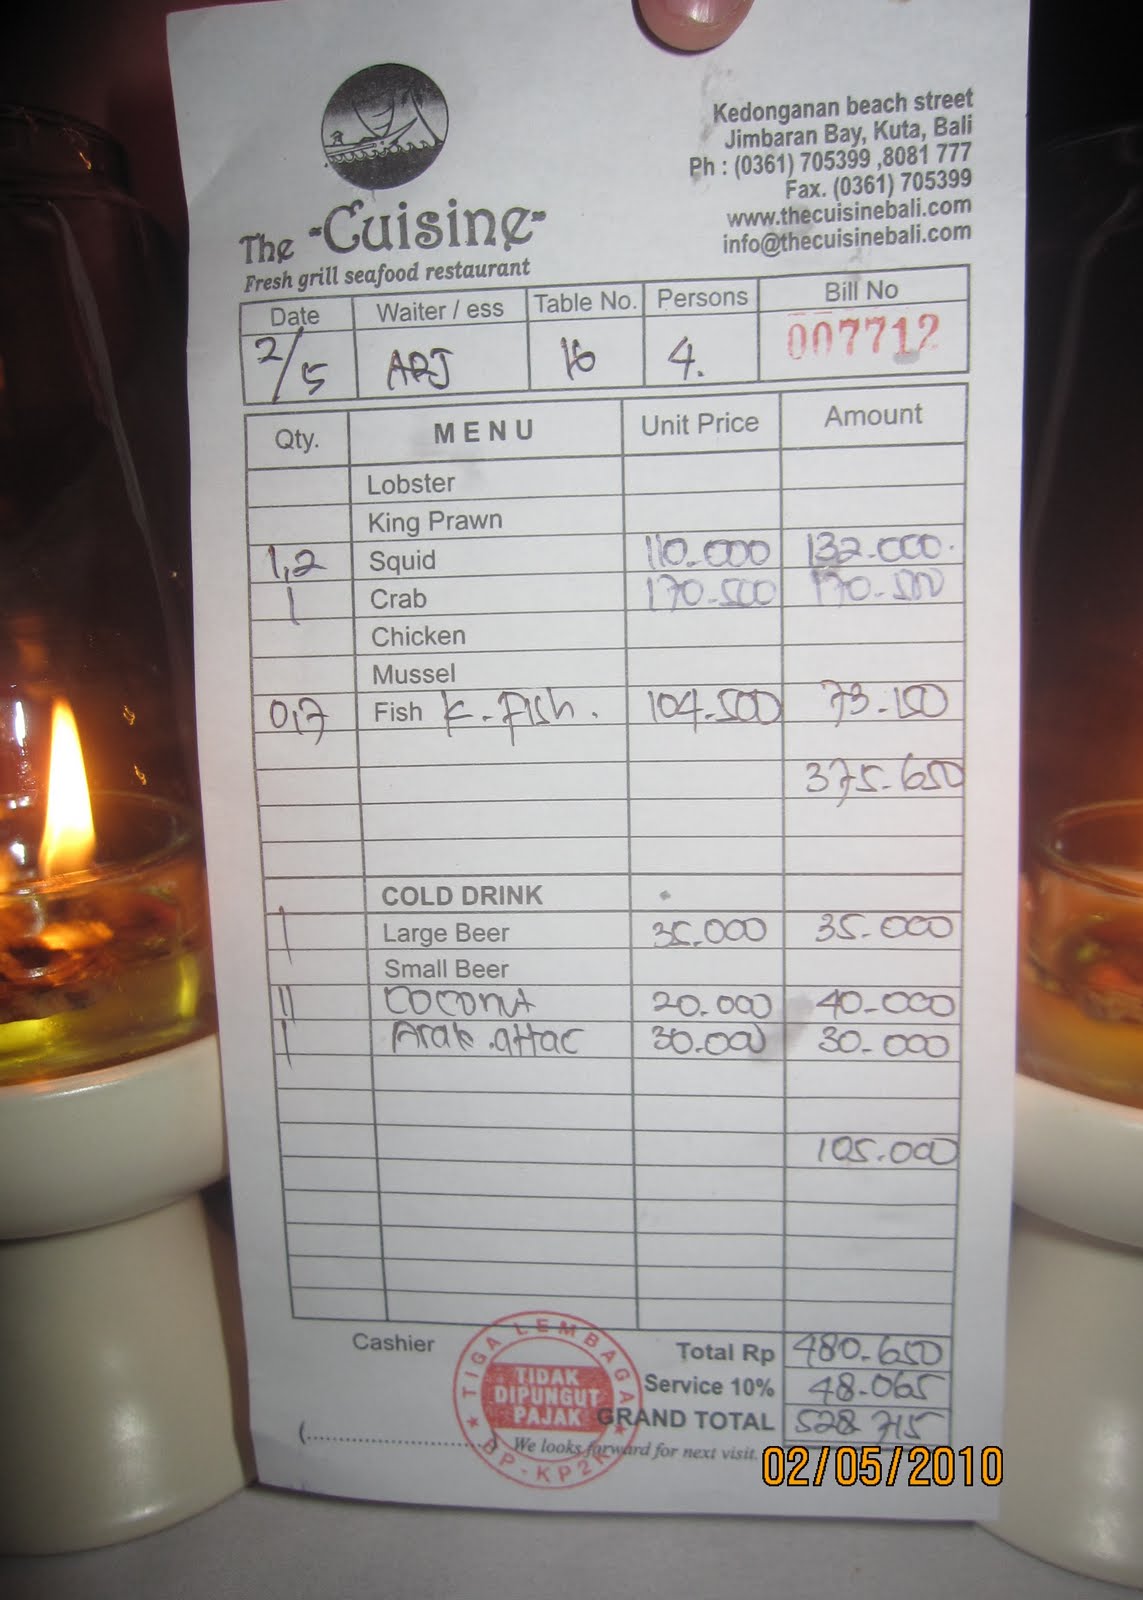 The -Cuisine-
Fresh grill seafood restaurant
Kedonganan beach street
Jimbaran Bay, Kuta, Bali
Ph : (0361) 705399 ,8081 777
Fax. (0361) 705399
www.thecuisinebali.com
info@thecuisinebali.com
Date Waiter / ess Table No. Persons Bill No
2/5 ARJ 16 4. 007712
Qty. MENU Unit Price Amount
Lobster
King Prawn
1,2 Squid 110.000 132.000.
1 Crab 170-500 170-500
Chicken
Mussel
0,7 Fish K-Fish. 104-500 73-150
375-650
COLD DRINK
1 Large Beer 35.000 35-000
Small Beer
11 Coconut 20.000 40-000
1 Arak .attac 30.000 30-000
105.000
Cashier
Total Rp 480-650
Service 10% 48.065
GRAND TOTAL 528 715
TIGA LEMBAGA
TIDAK
DIPUNGUT
PAJAK
DP-KP2K
(........................)
We looks forward for next visit.
02/05/2010